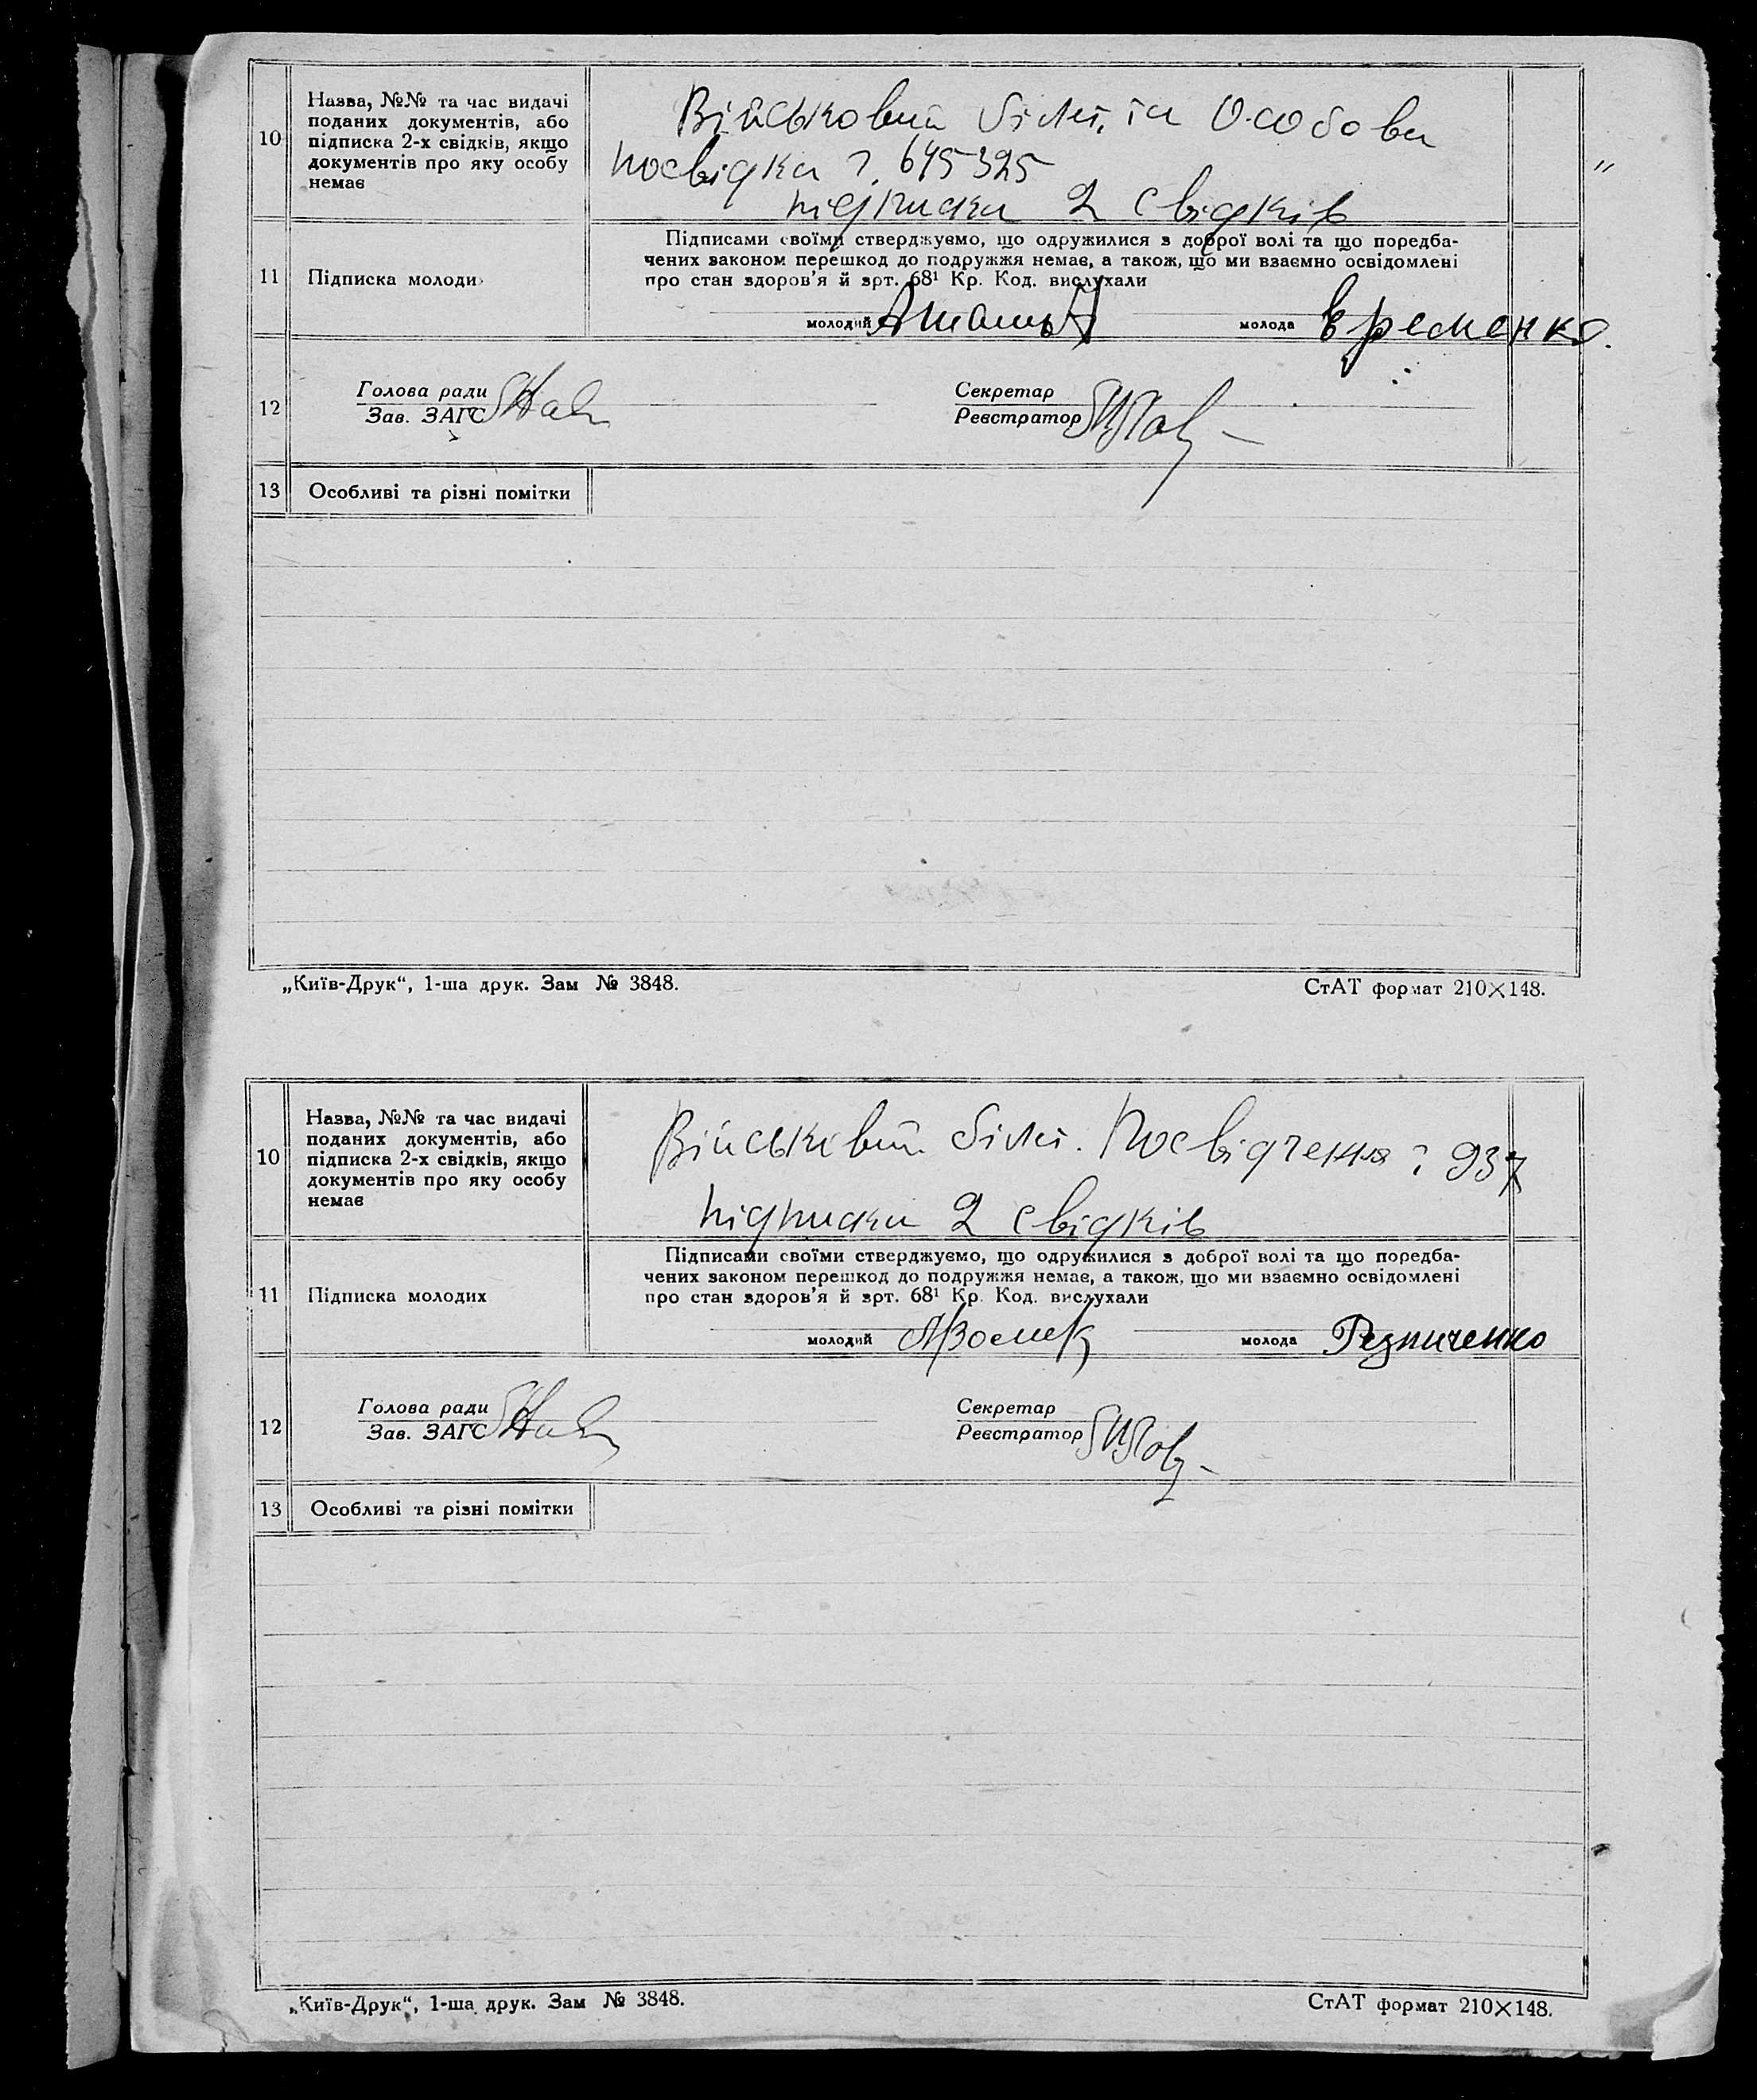 10
Назва, №№ та час видачі
поданих документів, або
підписка 2-х свідків, якщо
документів про яку особу
немає
Військовий білет, та Особова
посвідка 645325
підписка 2 свідків
11
Підписка молоди
Підписами своїми стверджуємо, що одружилися з доброї волі та що поредба-
чених законом перешкод до подружжя немає, а також, що ми взаємно освідомлені
про стан здоров'я й арт. 68¹ Кр. Код. вислухали
молодий
молода Єременко.
12
Голова ради
Зав. ЗАГС
Секретар
Реєстратор
13
Особливі та різні помітки
„Київ-Друк“, 1-ша друк. Зам № 3848.
СтАТ формат 210×148.
10
Назва, №№ та час видачі
поданих документів, або
підписка 2-х свідків, якщо
документів про яку особу
немає
Військовий білет. Посвідчення 937
підписка 2 свідків
11
Підписка молодих
Підписами своїми стверджуємо, що одружилися з доброї волі та що поредба-
чених законом перешкод до подружжя немає, а також, що ми взаємно освідомлені
про стан здоров'я й арт. 68¹ Кр. Код. вислухали
молодий
молода Резниченко
12
Голова ради
Зав. ЗАГС
Секретар
Реєстратор
13
Особливі та різні помітки
„Київ-Друк“, 1-ша друк. Зам № 3848.
СтАТ формат 210×148.